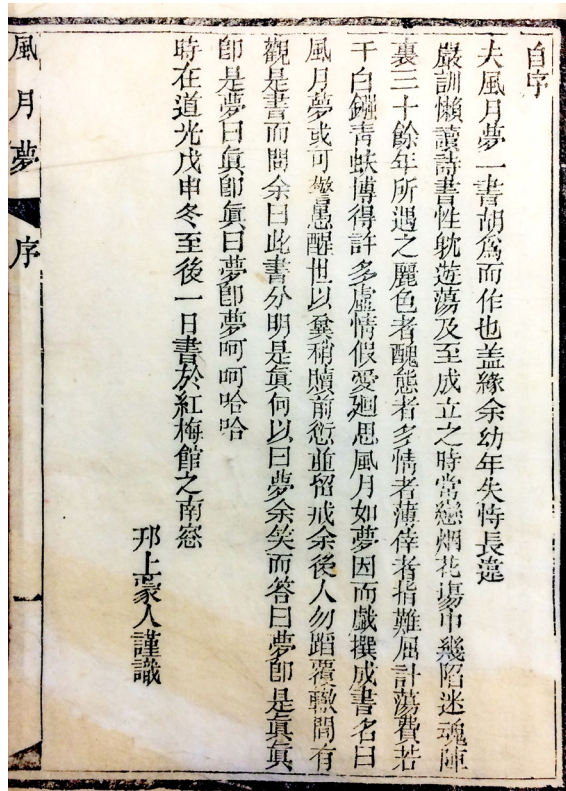 自序
夫風月夢一書胡爲而作也蓋緣余幼年失恃長違
嚴訓懶讀詩書性躭遊蕩及至成立之時常戀烟花塲中幾陷迷魂陣
裏三十餘年所遇之麗色者醜態者多情者薄倖者指難屈計蕩費若
干白鏹青蚨博得許多虛情假愛廻思風月如夢因而戲撰成書名曰
風月夢或可警愚醒世以冀稍贖前愆並留戒余後人勿蹈覆轍間有
觀是書而問余曰此書分明是眞何以曰夢余笑而答曰夢卽是眞眞
卽是夢曰眞卽眞曰夢卽夢呵呵哈哈
時在道光戊申冬至後一日書於紅梅館之南窓
邗上蒙人謹識
風月夢 序 一